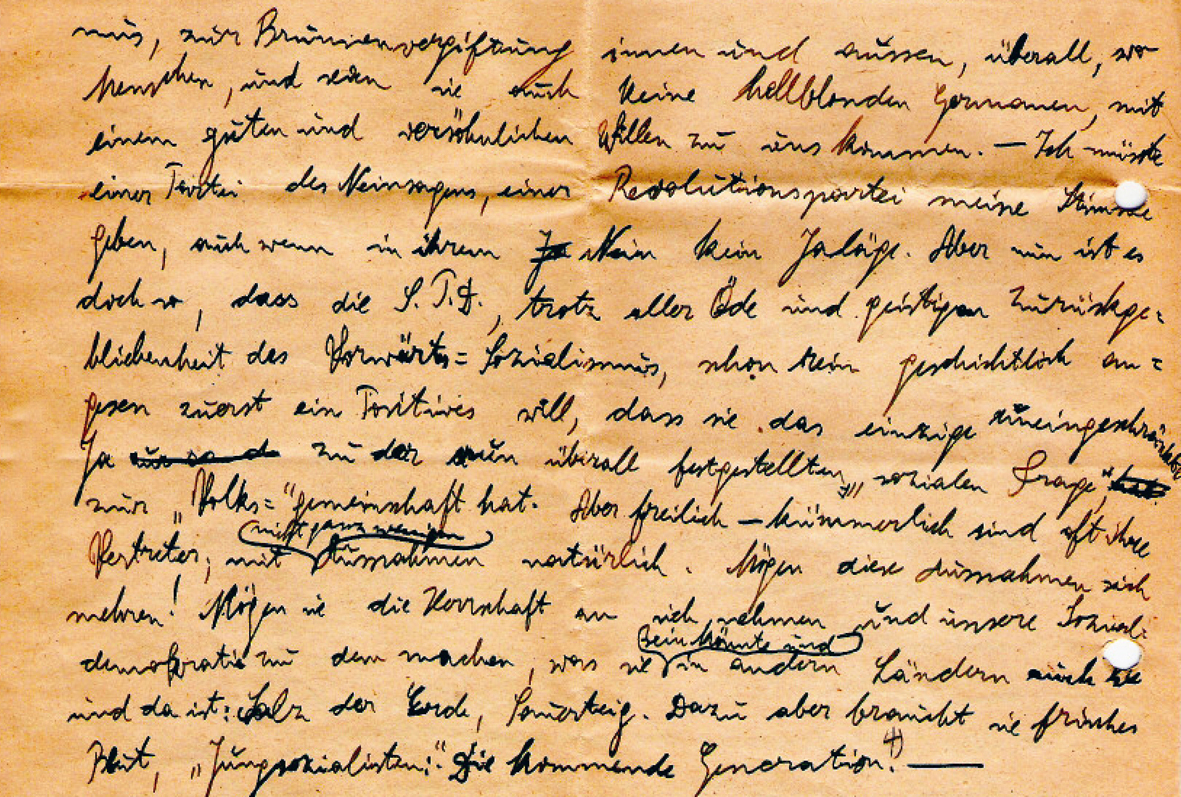 mus, zur Brunnenvergiftung innen und aussen, überall, wo
Menschen, und seien sie auch keine hellblonden Germanen, mit
einem guten und versöhnlichen Willen zu uns kommen. — Ich müsste
einer Partei des Neinsagens, einer Revolutionspartei meine Stimme
geben, auch wenn in ihrem Ja Nein kein Ja läge. Aber nun ist es
doch so, dass die S.P.D., trotz aller Öde und geistigen Zurückge=
bliebenheit des Vorwärts=Sozialismus, schon rein geschichtlich an=
gesen zuerst ein Positives will, dass sie das einzige uneingeschränkte
Ja zu der nun überall festgestellten „sozialen Frage",
zur „Volks="gemeinschaft hat. Aber freilich — kümmerlich sind oft ihre
nicht ganz wenigen
Vertreter, mit Ausnahmen natürlich. Mögen diese Ausnahmen sich
mehren! Mögen sie die Herrschaft an sich nehmen und unsere Sozial=
sein könnte und
demokratie zu dem machen, was sie in andern Ländern auch
und da ist: Salz der Erde, Sauerteig. Dazu aber braucht sie frisches
Blut, „Jungsozialisten:" Die kommende Generation! +) —